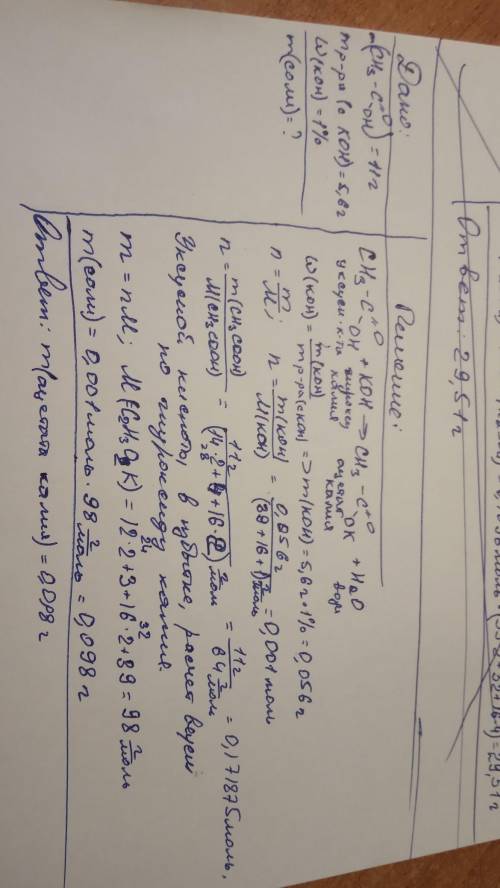 Ответ: 29,51 г
Дано:
m(CH3-C=O-OH) = 11 г
m р-ра (с KOH) = 5,6 г
W(KOH) = 1%
m(соли) = ?
Решение:
CH3-C=O-OH + KOH → CH3-C=O-OK + H2O
уксусн. к-та гидроксид калия ацетат калия вода
W(KOH) = m(KOH) / m р-ра(с KOH) => m(KOH) = 5,6 г · 1% = 0,056 г
n = m/M; n = m(KOH)/M(KOH) = 0,056 г / (39+16+1) г/моль = 0,001 моль
n = m(CH3COOH)/M(CH3COOH) = 11 г / (14·2+4+16·2) г/моль = 11 г / 64 г/моль = 0,171875 моль,
Уксусной кислоты, в избытке, расчет ведем
по гидроксиду калия.
m = nM; M(C2H3O2K) = 12·2+3+16·2+39 = 98 г/моль
24 32
m(соли) = 0,001 моль · 98 г/моль = 0,098 г
Ответ: m(ацетата калия) = 0,098 г